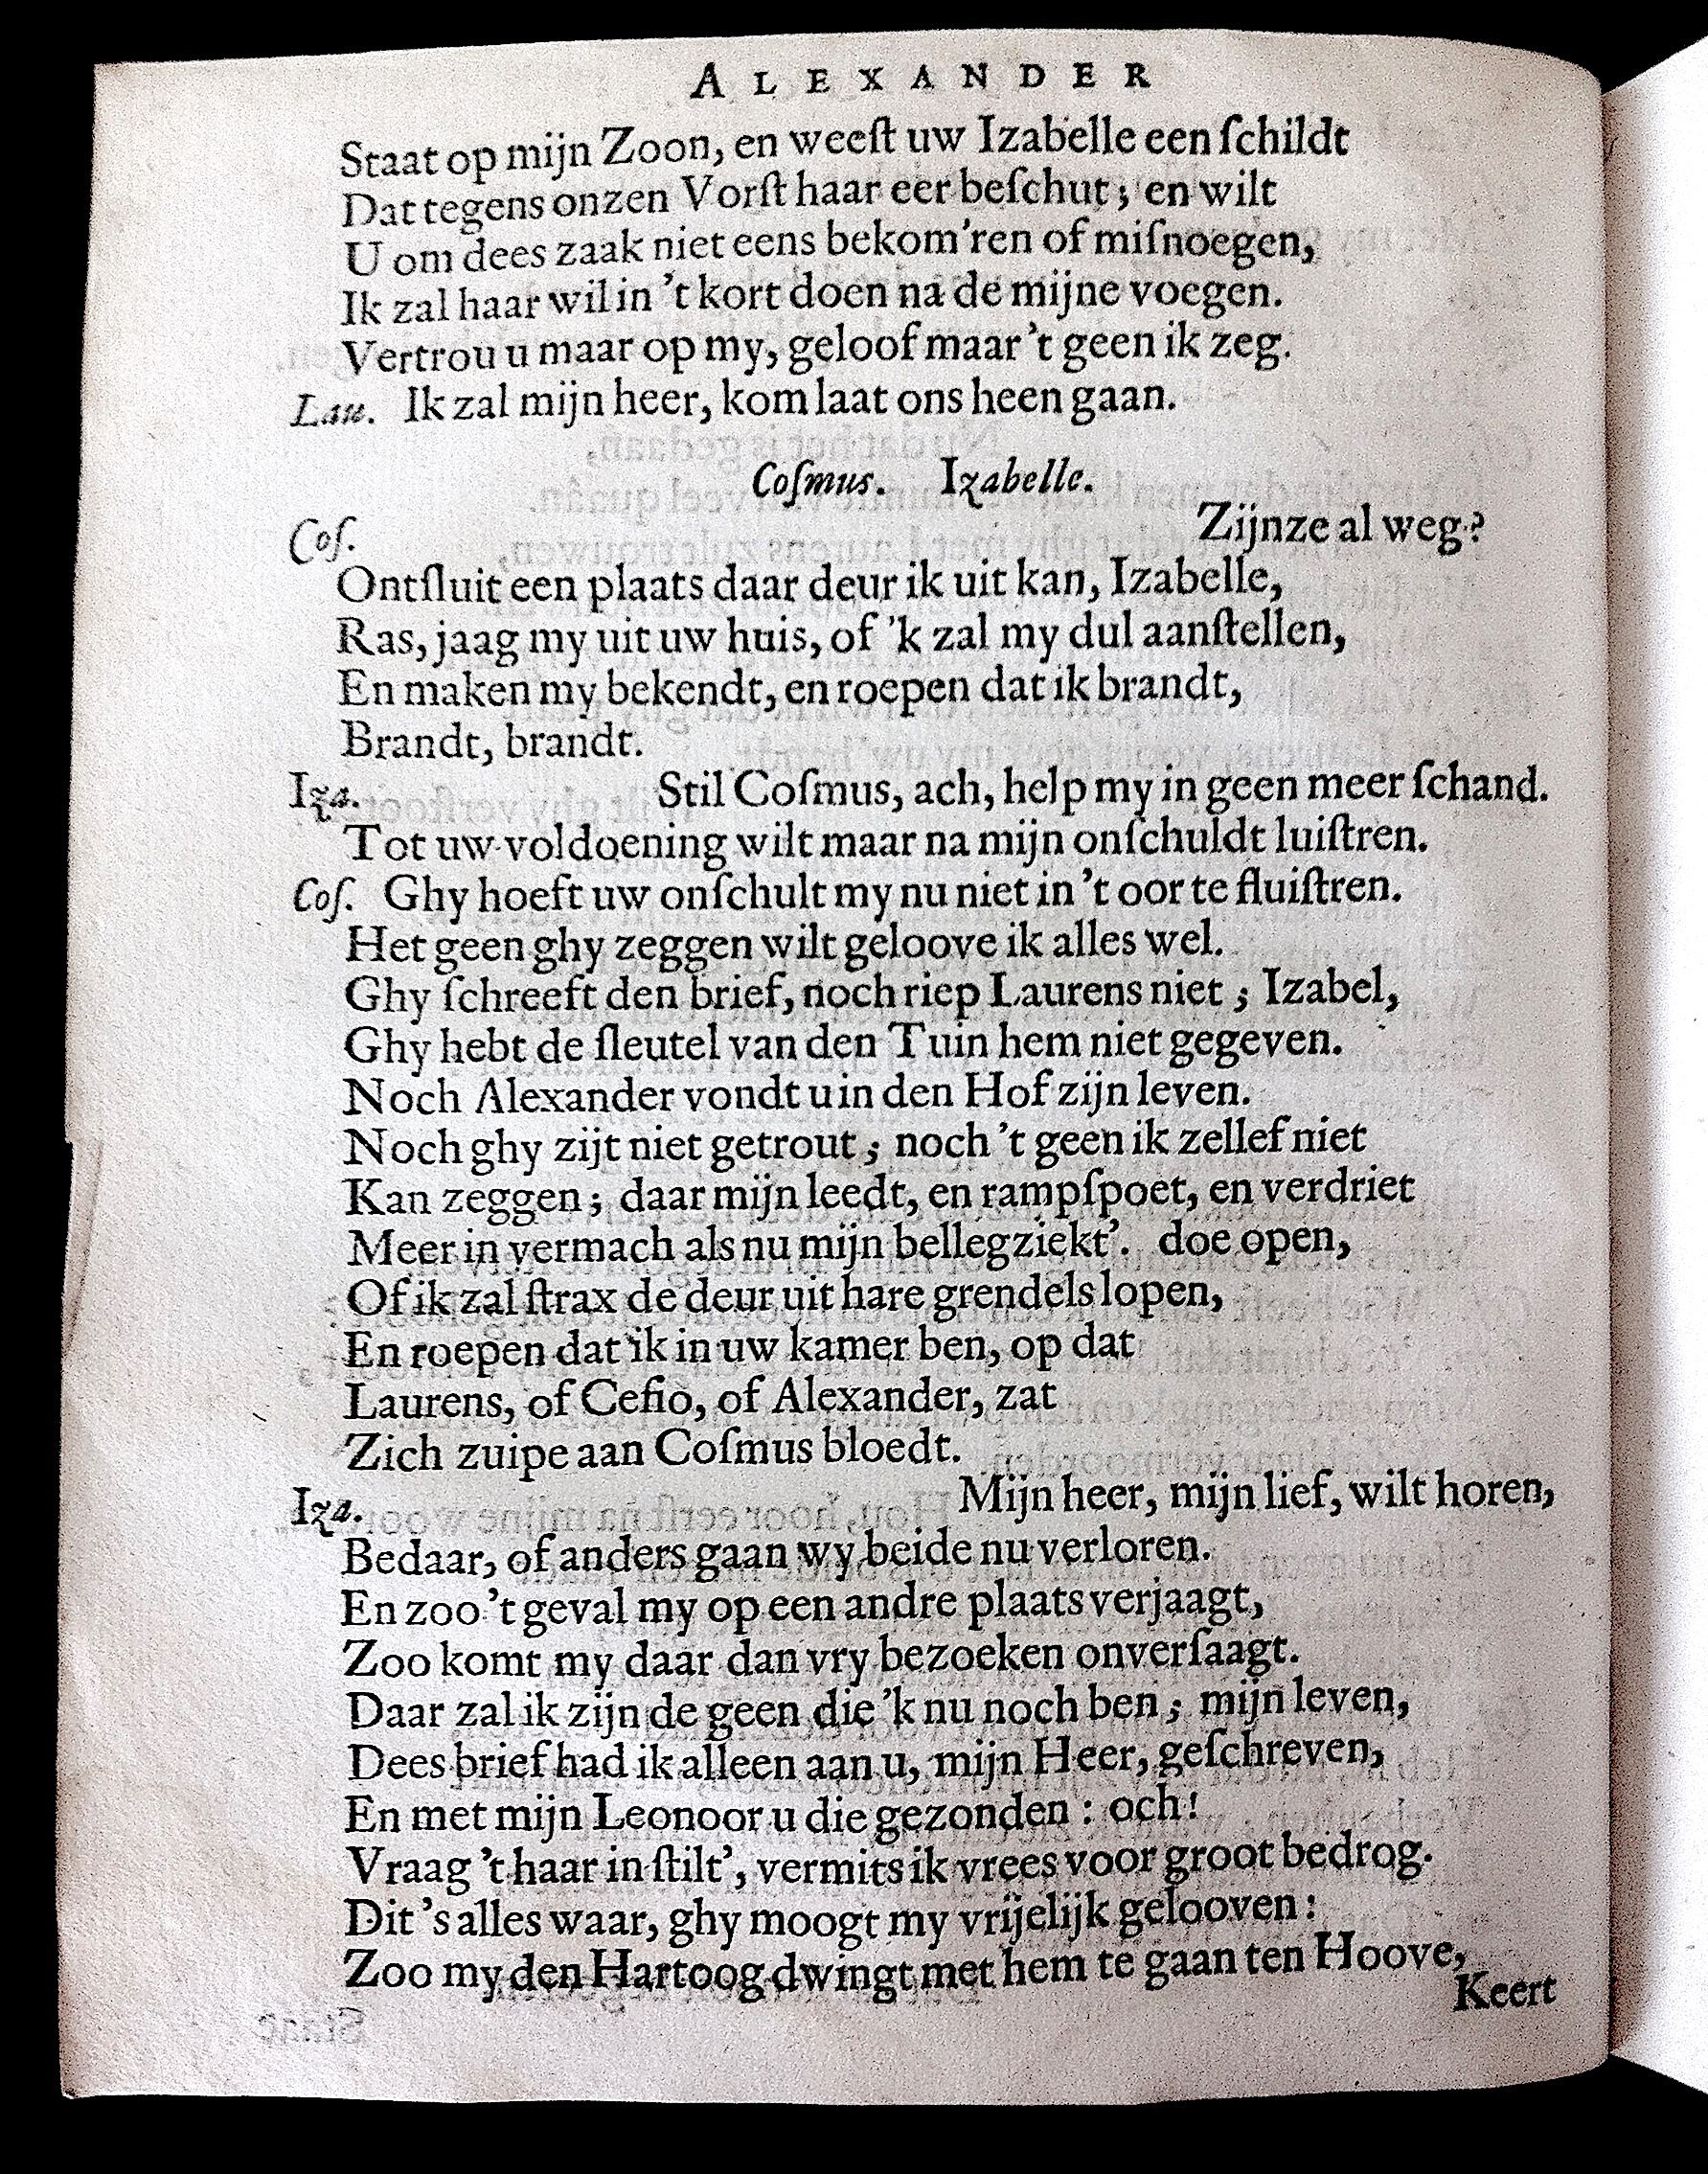 ALEXANDER
Staat op mijn Zoon, en weeſt uw Izabelle een ſchildt
Dat tegens onzen Vorſt haar eer beſchut; en wilt
U om dees zaak niet eens bekom'ren of miſnoegen,
Ik zal haar wil in 't kort doen na de mijne voegen.
Vertrou u maar op my, geloof maar 't geen ik zeg.
Lau. Ik zal mijn heer, kom laat ons heen gaan.
Coſmus. Izabelle.
Coſ. Zijnze al weg?
Ontſluit een plaats daar deur ik uit kan, Izabelle,
Ras, jaag my uit uw huis, of 'k zal my dul aanſtellen,
En maken my bekendt, en roepen dat ik brandt,
Brandt, brandt.
Iza. Stil Coſmus, ach, help my in geen meer ſchand.
Tot uw voldoening wilt maar na mijn onſchuldt luiſtren.
Coſ. Ghy hoeft uw onſchult my nu niet in 't oor te fluiſtren.
Het geen ghy zeggen wilt geloove ik alles wel.
Ghy ſchreeft den brief, noch riep Laurens niet; Izabel,
Ghy hebt de ſleutel van den Tuin hem niet gegeven.
Noch Alexander vondt u in den Hof zijn leven.
Noch ghy zijt niet getrout; noch 't geen ik zellef niet
Kan zeggen; daar mijn leedt, en rampſpoet, en verdriet
Meer in vermach als nu mijn bellegziekt'. doe open,
Of ik zal ſtrax de deur uit hare grendels lopen,
En roepen dat ik in uw kamer ben, op dat
Laurens, of Cefio, of Alexander, zat
Zich zuipe aan Coſmus bloedt.
Iza. Mijn heer, mijn lief, wilt horen,
Bedaar, of anders gaan wy beide nu verloren.
En zoo 't geval my op een andre plaats verjaagt,
Zoo komt my daar dan vry bezoeken onverſaagt.
Daar zal ik zijn de geen die 'k nu noch ben; mijn leven,
Dees brief had ik alleen aan u, mijn Heer, geſchreven,
En met mijn Leonoor u die gezonden: och!
Vraag 't haar in ſtilt', vermits ik vrees voor groot bedrog.
Dit 's alles waar, ghy moogt my vrijelijk gelooven:
Zoo my den Hartoog dwingt met hem te gaan ten Hoove,
Keert